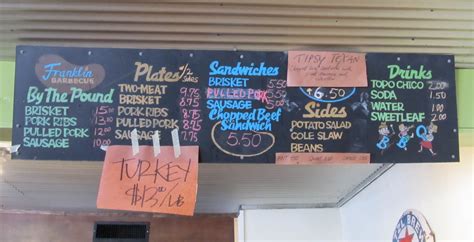 Franklin
BARBECUE
By The Pound
BRISKET 15.00
PORK RIBS 13.00
PULLED PORK 12.00
SAUSAGE 10.00
Plates w/2 Sides
TWO-MEAT 9.75
BRISKET 8.75
PORK RIBS 8.75
PULLED PORK 8.75
SAUSAGE 7.75
Sandwiches
BRISKET 5.50
PULLED PORK
SAUSAGE
Chopped Beef
Sandwich
5.50
TIPSY TEXAN
6.50
Sides
POTATO SALAD
COLE SLAW
BEANS
Drinks
TOPO CHICO 2.00
SODA 1.50
WATER
SWEETLEAF
TURKEY
$13.00/LB